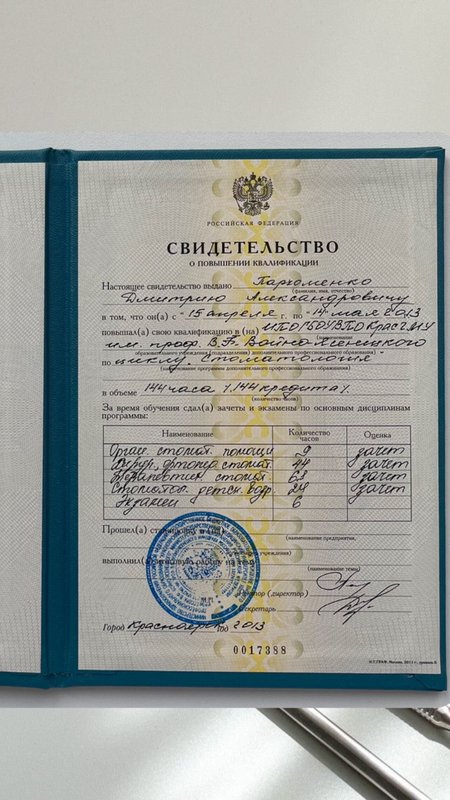 РОССИЙСКАЯ ФЕДЕРАЦИЯ
СВИДЕТЕЛЬСТВО
О ПОВЫШЕНИИ КВАЛИФИКАЦИИ
Настоящее свидетельство выдано Пархоменко
(фамилия, имя, отчество)
Дмитрию Александровичу
в том, что он(а) с «15 апреля г. по «14» мая 2013
повышал(а) свою квалификацию в (на) ИПО ГБОУ ВПО КрасГМУ
им. проф. В.Ф. Войно-Ясенецкого
образовательного учреждения (подразделения) дополнительного профессионального образования)
по циклу „Стоматология"
(наименование программы дополнительного профессионального образования)
в объеме 144 часа (144 кредита).
(количество часов)
За время обучения сдал(а) зачеты и экзамены по основным дисциплинам
программы:
Наименование Количество часов Оценка
Орган. стомат. помощи 9 зачет
стомат. 44 зачет
Терапевтич. стомат 63 зачет
Стоматол. детск. возр. 24 зачет
Экзамен 6
Прошел(а)
(наименование предприятия,
учреждения)
выполнил(а) работу на тему
(наименование темы)
Ректор (директор)
Секретарь
Город Красноярск год 2013
0017388